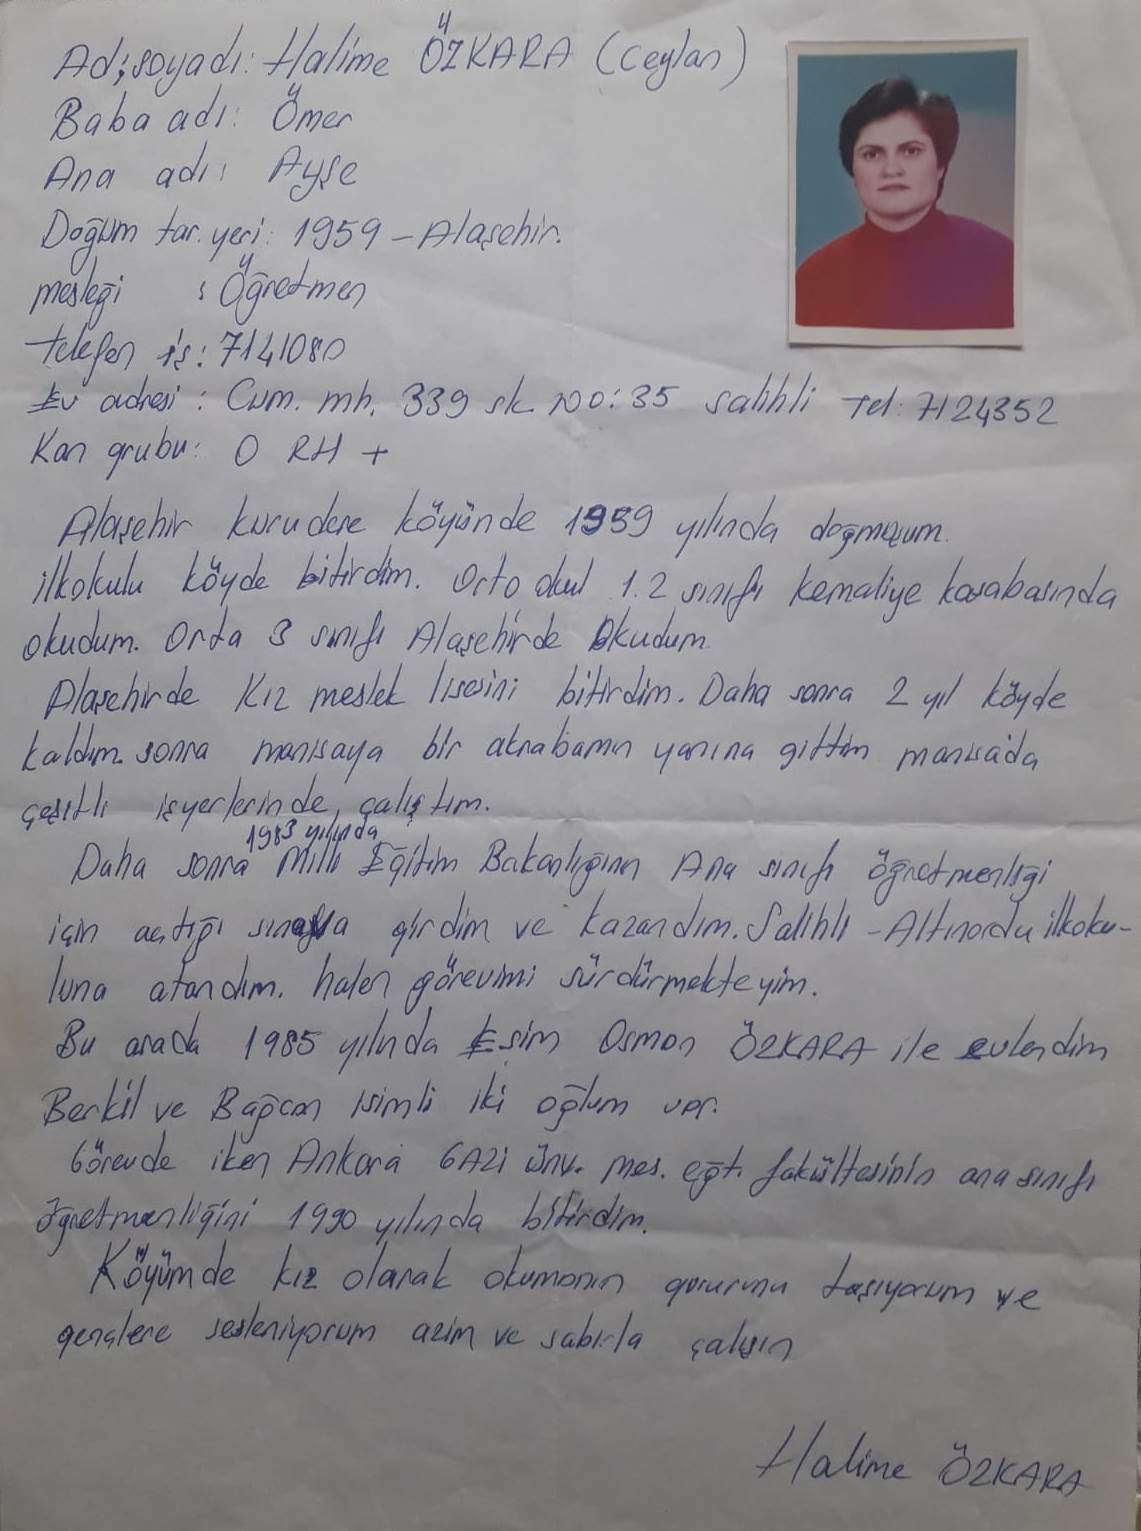 Adı, soyadı: Halime ÖZKARA (Ceylan)
Baba adı: Ömer
Ana adı: Ayşe
Doğum tar. yeri: 1959 - Alaşehir.
mesleği : Öğretmen
telefon iş: 7141080
Ev adresi : Cum. mh. 339 sk. NO: 35 salihli Tel: 7124352
Kan grubu: O RH +
Alaşehir kurudere köyünde 1959 yılında doğmuşum.
ilkokulu köyde bitirdim. Orta okul 1.2 sınıfı Kemaliye kasabasında
okudum. Orta 3 sınıfı Alaşehirde Okudum.
Alaşehirde Kız meslek lisesini bitirdim. Daha sonra 2 yıl köyde
kaldım. sonra manisaya bir akrabamın yanına gittim manisada
çeşitli işyerlerinde çalıştım.
1983 yılında
Daha sonra Milli Eğitim Bakanlığının Ana sınıfı öğretmenliği
için açtığı sınava girdim ve kazandım. Salihli - Altınordu ilkoku-
luna atandım. halen görevimi sürdürmekteyim.
Bu arada 1985 yılında Eşim Osman ÖZKARA ile evlendim
Berkil ve Bağcan isimli iki oğlum var.
Görevde iken Ankara GAZi ünv. mes. eğt. fakültesinin ana sınıfı
öğretmenliğini 1990 yılında bitirdim.
Köyümde kız olarak okumanın gururunu taşıyorum ve
gençlere sesleniyorum azim ve sabırla çalışın
Halime ÖZKARA